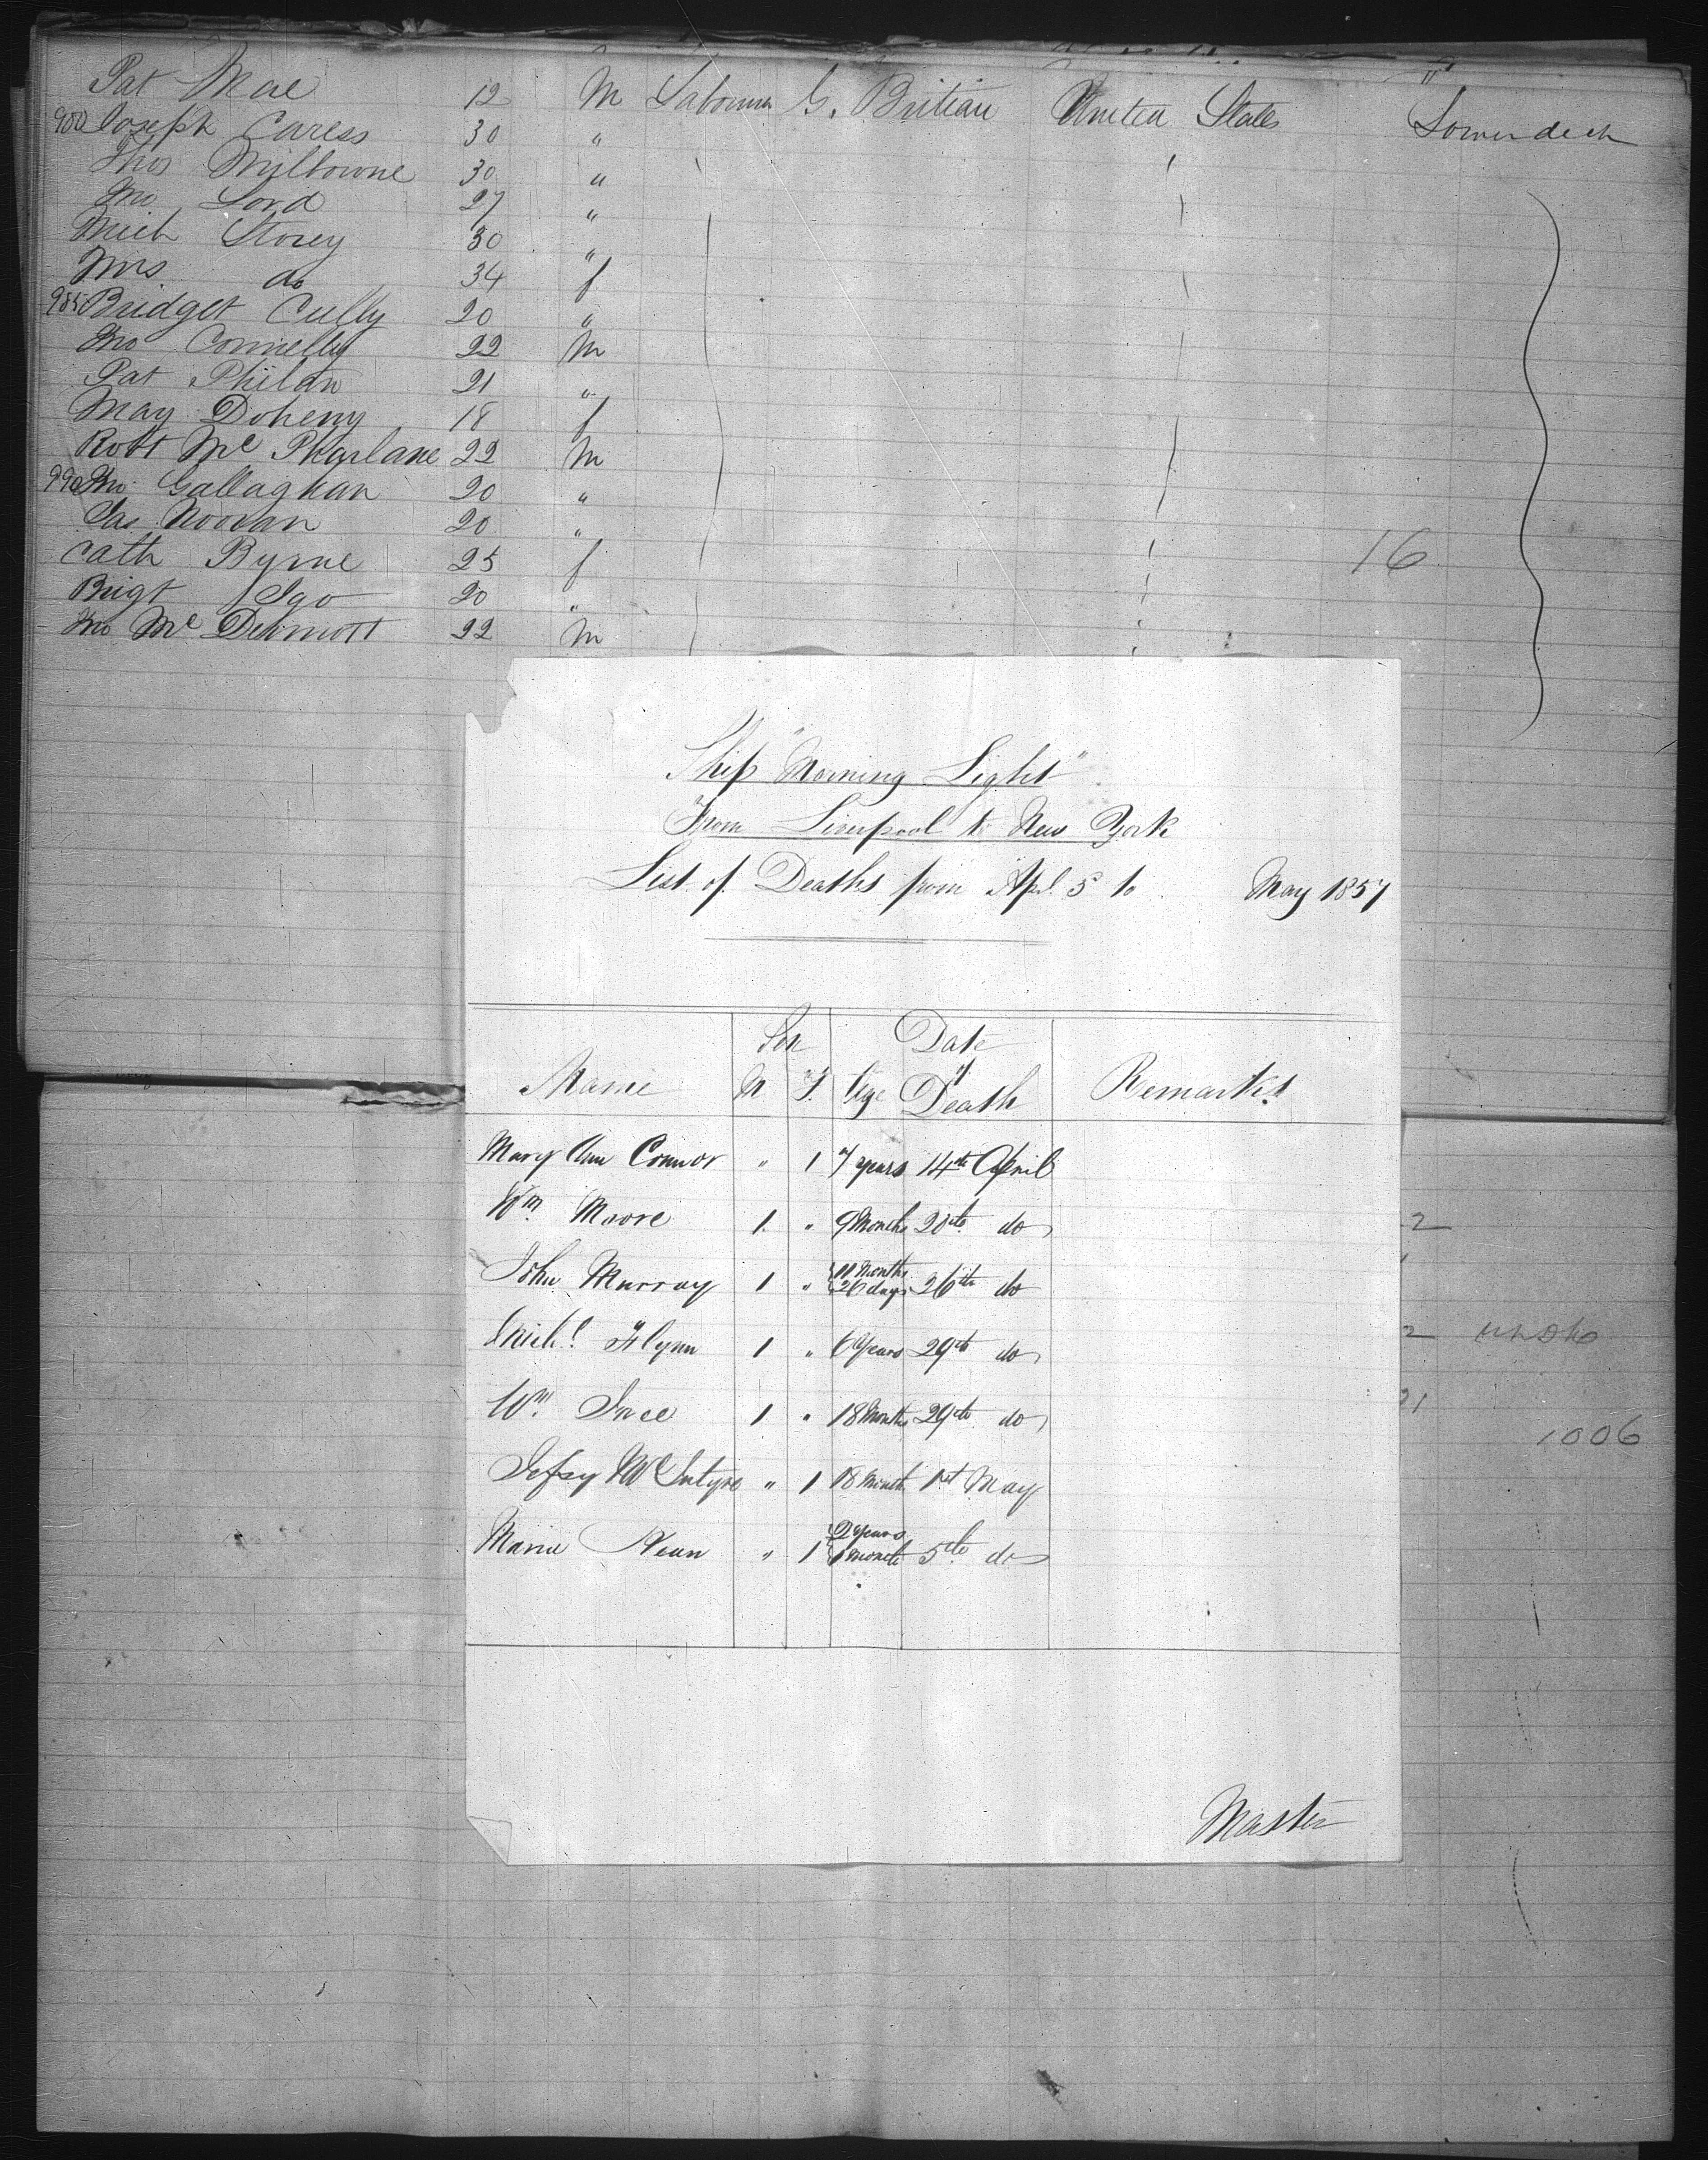 Pat Mae 12 M Labourer G. Britian United States Lower deck
Joseph Caress 30 "
Thos Milbowne 30 "
Jno Lord 27 "
Mich Storey 30 "
Mrs do 34 f
985 Bridget Cully 20 "
Jno Connelly 22 M
Pat Philan 21 "
May Doheny 18 f
Robt Mc Pharlane 22 M
990 Jno Gallaghan 20 "
Jas Noonan 20 "
Cath Byrne 25 f 16
Brigt Igo 20 "
Jno Mc Dermott 22 M
Ship "Morning Light"
From Liverpool to New York
List of Deaths from Apl. 5 to May 1857
Sex Date
Name M F. Age of Death Remarks
Mary Ann Connor " 1 7 years 14th April
Wm Moore 1 " 9 Months 20th do
John Murray 1 " 11 Months 26 days 26th do
Michl Flynn 1 " 6 Years 29th do
Wm Ince 1 " 18 Months 29th do
Mc Intyre " 1 18 Month 1st May
Maria " 1 2 Years 1 month 5th do
Master
2
2
21
1006